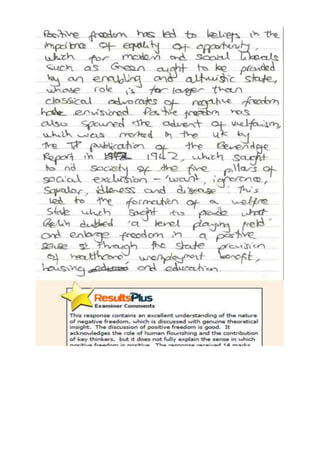 Positive freedom has led to beliefs in the
importance of equality of opportunity,
which for modern and social liberals
such as Green ought to be provided
by an enabling and altruistic state,
whose role is far larger than
classical advocates of negative freedom
have envisioned. Positive freedom has
also spawned the advent of welfarism,
which was marked in the UK by
the publication of the Beveridge
Report in 1942, which sought
to rid society of the five pillars of
social exclusion – 'want, ignorance,
squalor, idleness and disease'. This
led to the formation of a welfare
state which sought to provide what
dubbed 'a level playing field'
and enlarge freedom in a positive
sense through the state provision
of healthcare, unemployment benefit,
housing and education.
ResultsPlus
Examiner Comments
This response contains an excellent understanding of the nature
of negative freedom, which is discussed with genuine theoretical
insight. The discussion of positive freedom is good. It
acknowledges the role of human flourishing and the contribution
of key thinkers, but it does not fully explain the sense in which
positive freedom is positive. The response received 14 marks.